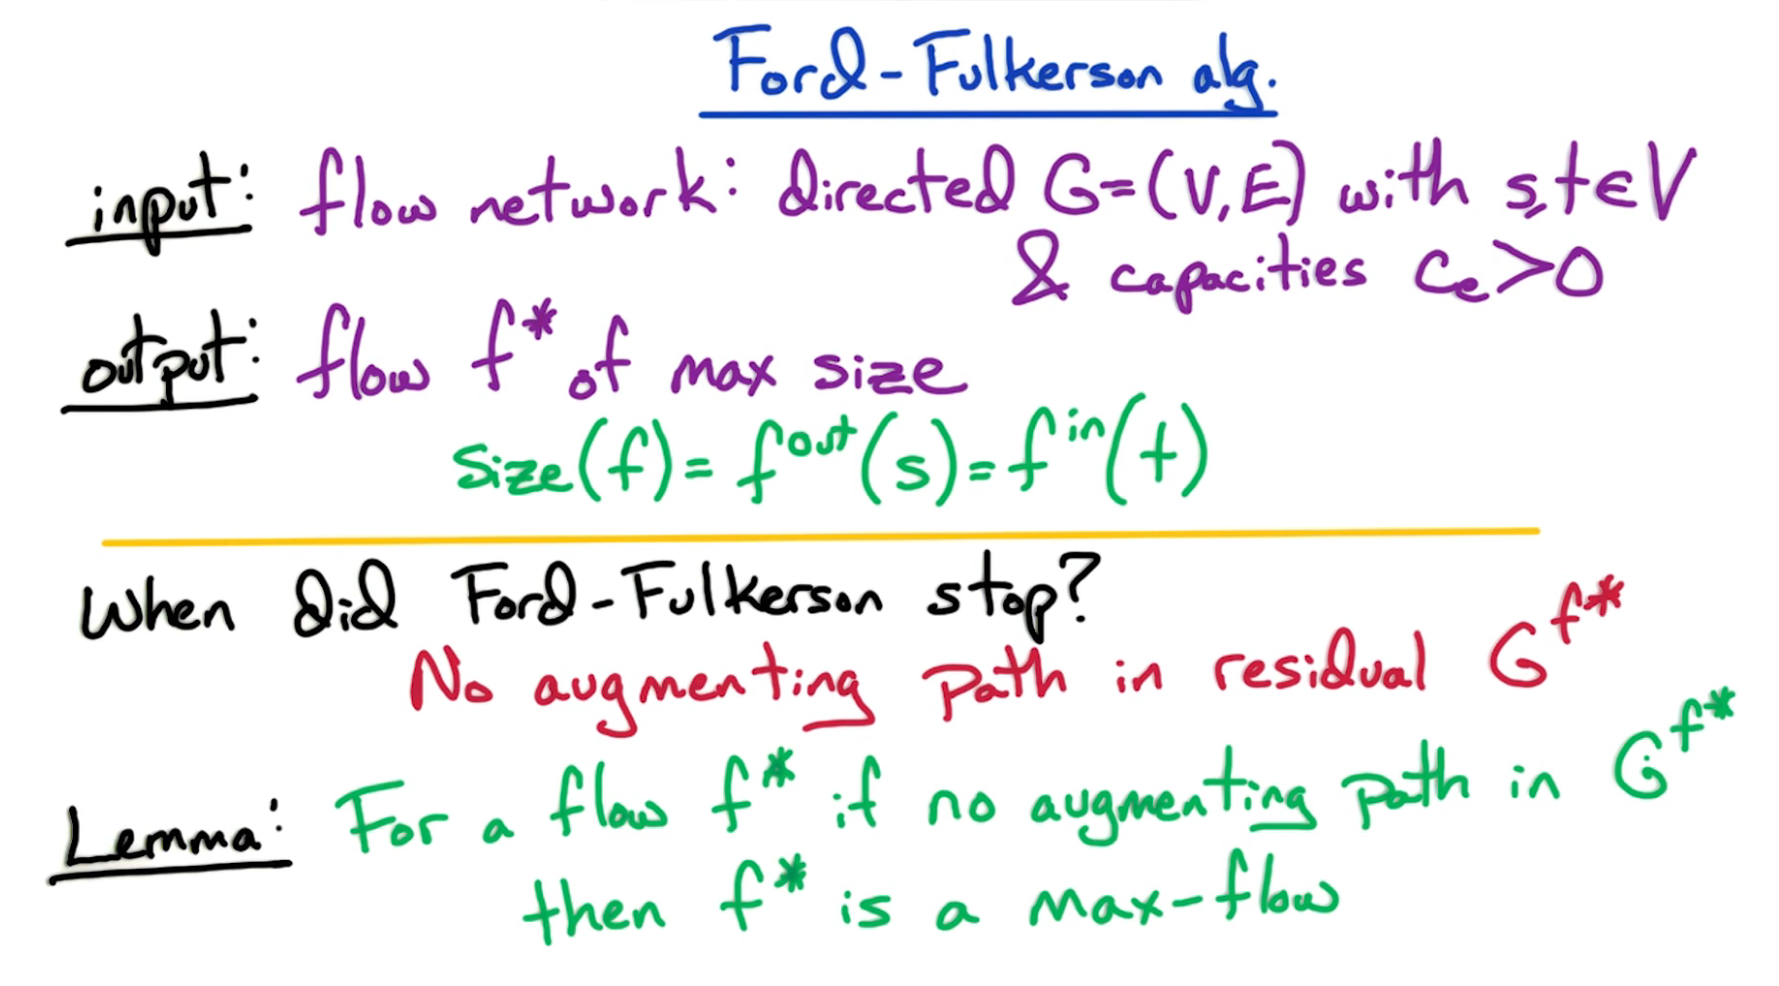 Ford-Fulkerson alg.
input: flow network: directed G=(V,E) with s,t∈V
& capacities cₑ>0
output: flow f* of max size
size(f)=f^out(s)=f^in(t)
When did Ford-Fulkerson stop?
No augmenting path in residual G^f*
Lemma: For a flow f* if no augmenting path in G^f*
then f* is a max-flow